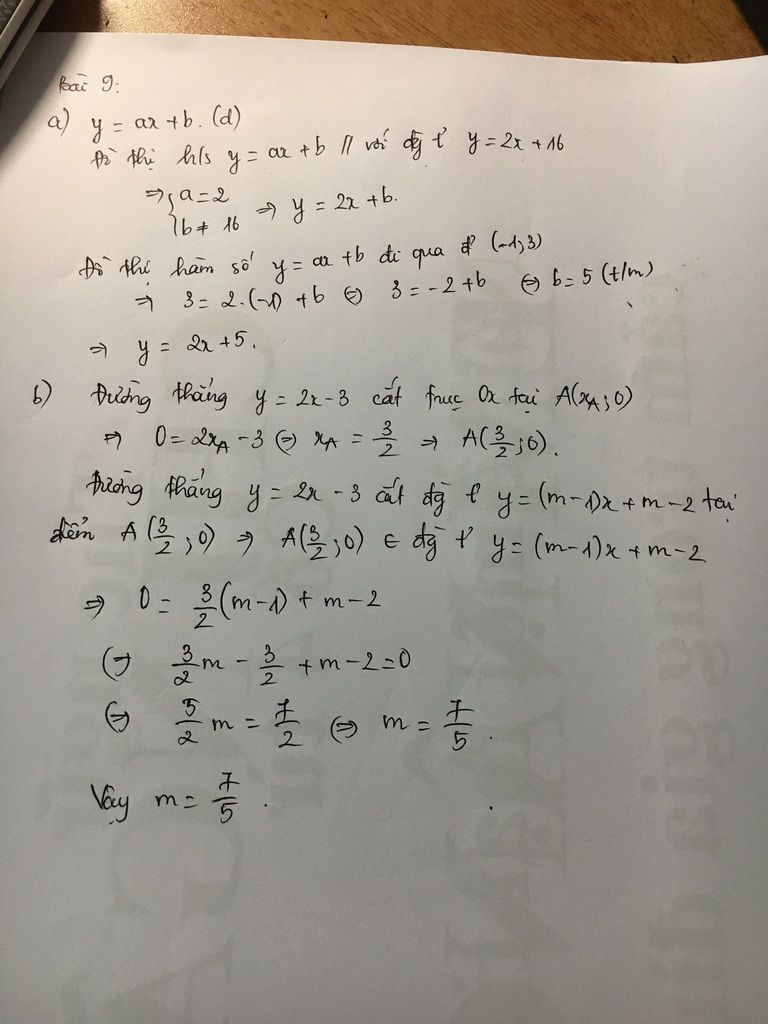 Bài 9:
a) y = ax + b. (d)
Đồ thị h/s y = ax + b // với đg t² y = 2x + 16
⇒ { a = 2
b ≠ 16 ⇒ y = 2x + b.
Đồ thị hàm số y = ax + b đi qua đ² (-1; 3)
⇒ 3 = 2.(-1) + b ⇔ 3 = -2 + b ⇔ b = 5 (t/m)
⇒ y = 2x + 5.
b) Đường thẳng y = 2x - 3 cắt trục Ox tại A(x_A; 0)
⇒ 0 = 2x_A - 3 ⇔ x_A = 3/2 ⇒ A(3/2; 0).
Đường thẳng y = 2x - 3 cắt đg t² y = (m-1)x + m - 2 tại
điểm A(3/2; 0) ⇒ A(3/2; 0) ∈ đg t² y = (m-1)x + m - 2
⇒ 0 = 3/2(m-1) + m - 2
⇔ 3/2m - 3/2 + m - 2 = 0
⇔ 5/2 m = 7/2 ⇔ m = 7/5.
Vậy m = 7/5.